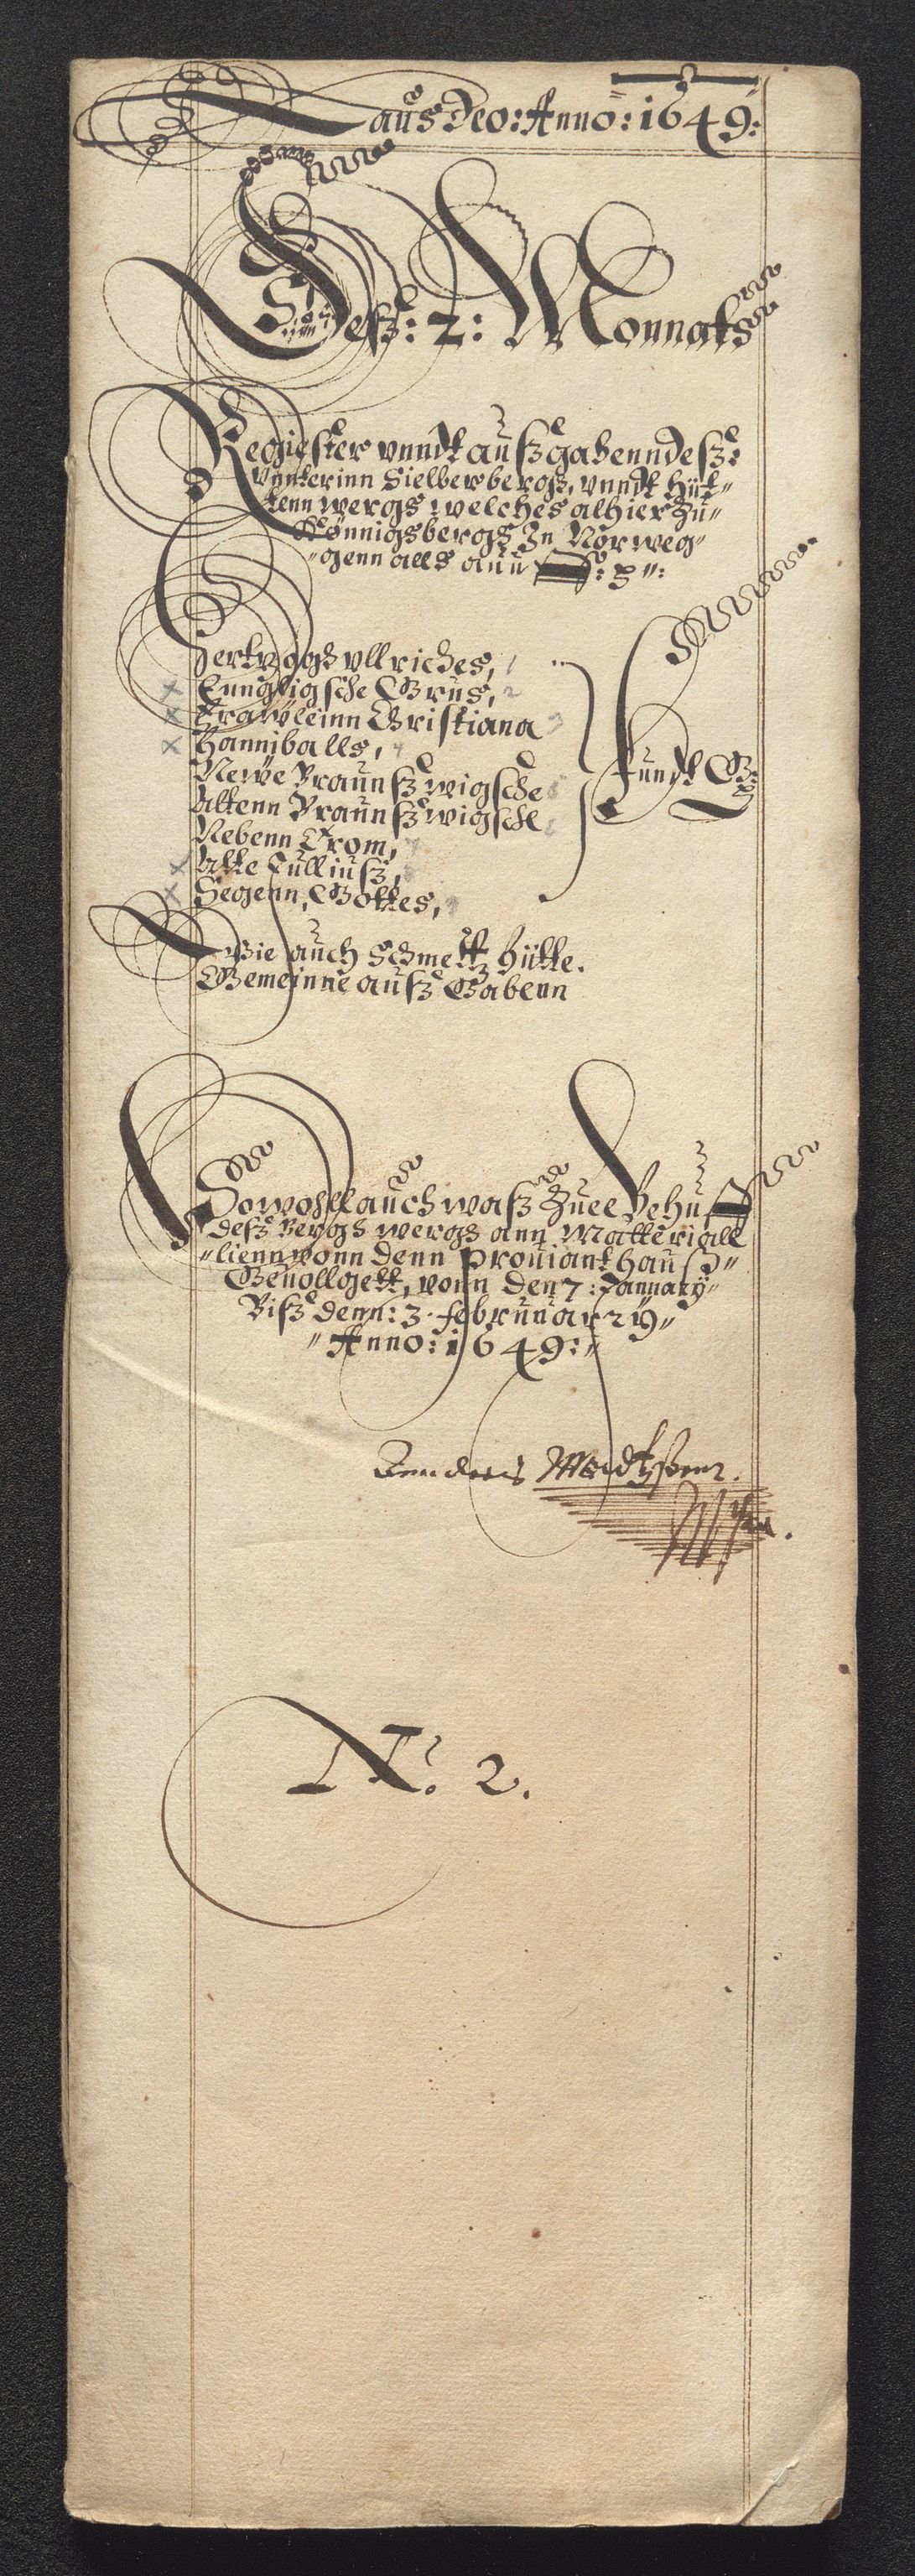 Laus Deo: Anno: 1649:
Deß: 2: Monnats
Regiester vnndt außgabenn deß
Vnnterinn Sielberbergß, vnndt Hüt-
tenn wergs welches alhier zu-
Könnigsbergs In Norweg-
genn alls ann
Hertzogs Vllriches, 1
Kungligsche Grus, 2
Frawleinn Christiana 3
Hanniballs, 4
Newe Braunßwigsche 5
Altenn Braunßwigsche 6
Nebenn Trom, 7
Alte Julliuß, 8
Segenn, Gottes, 9
Fundt G:
Wie auch Schmeltz Hütte.
Gemeinne auß Gabenn
Sowohll auch waß zuee Behuff
deß Bergs wergs ann Matteriall
lienn vonn denn Prouianthauß
Gevollgett, vonn den 7: Januarÿ
Biß denn: 3. februuarÿ
Anno: 1649:
Madtzsenn.
N: 2.